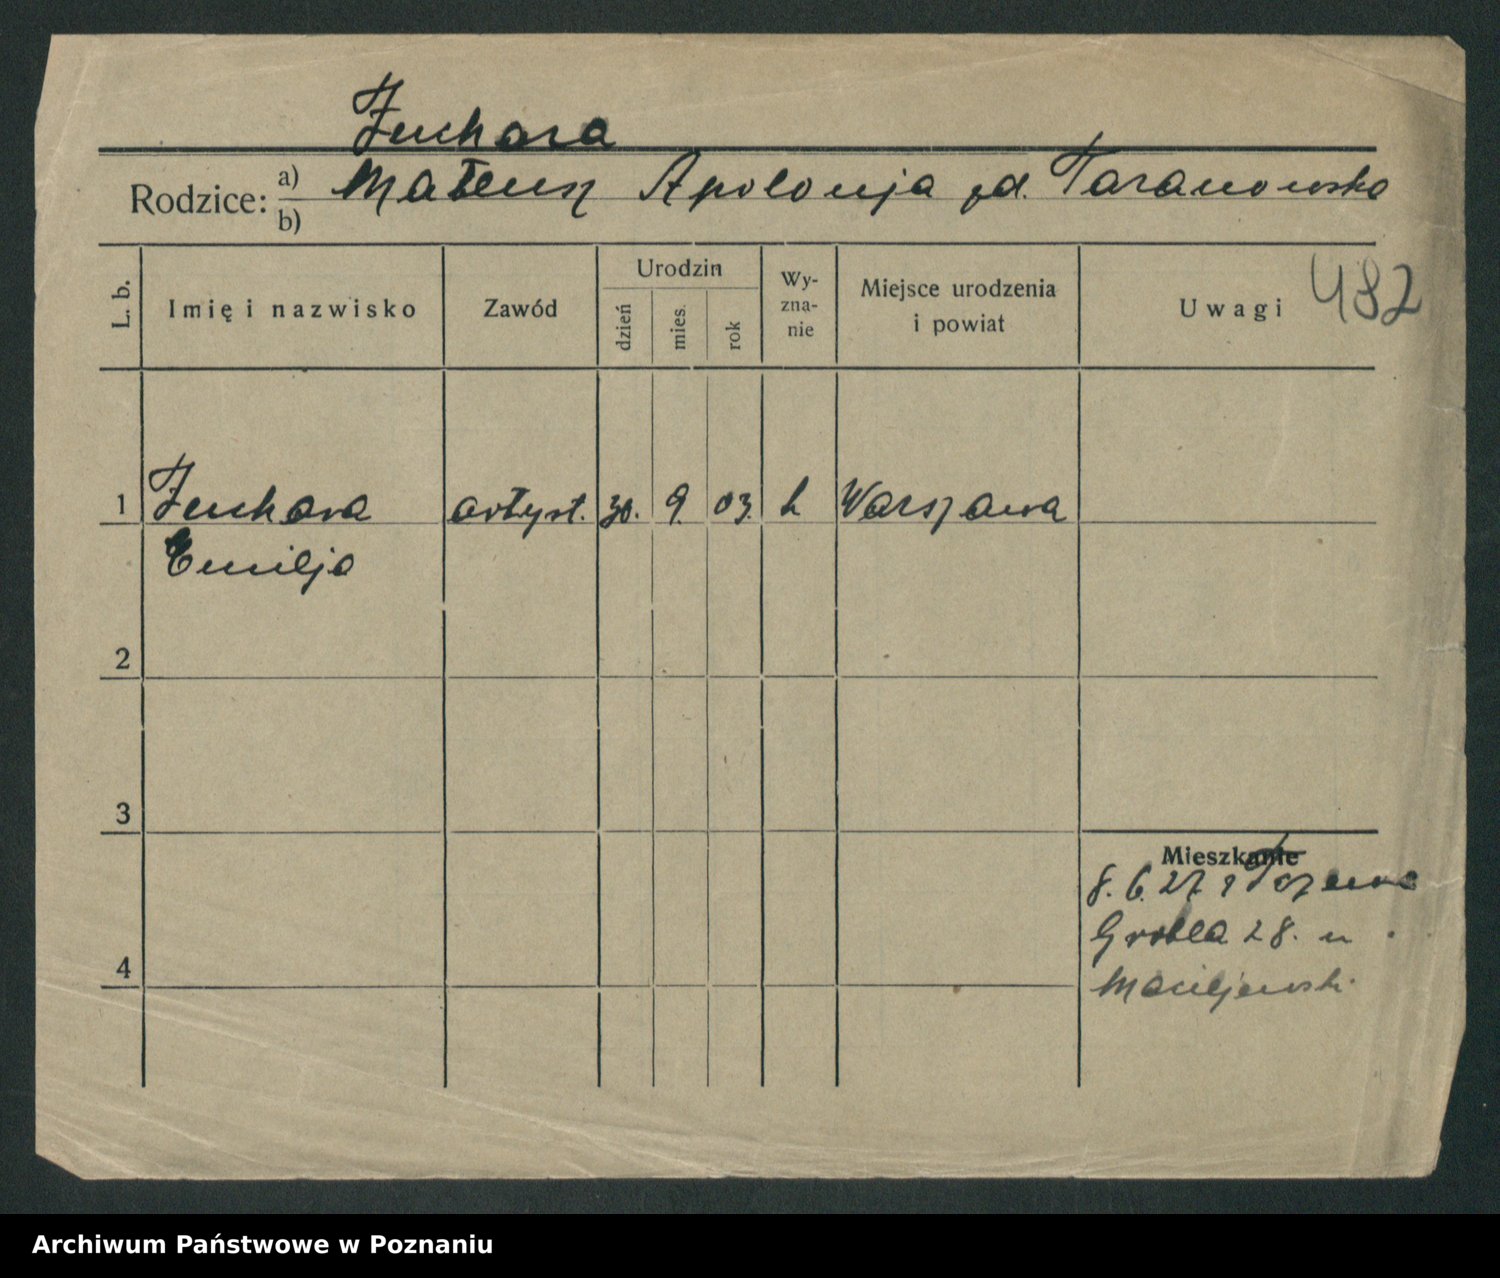 Żuchara
Rodzice: a) Mateusz Apolonja zd. Taranowska
b)
L. b. Imię i nazwisko Zawód Urodzin dzień mies. rok Wy-zna-nie Miejsce urodzenia i powiat Uwagi 482
1 Żuchara artyst. 30. 9. 03. k Warszawa
Emilja
2
3
Mieszkanie
8. 6. 27. z
Grobla 28. u
4
Maciejewski
Archiwum Państwowe w Poznaniu